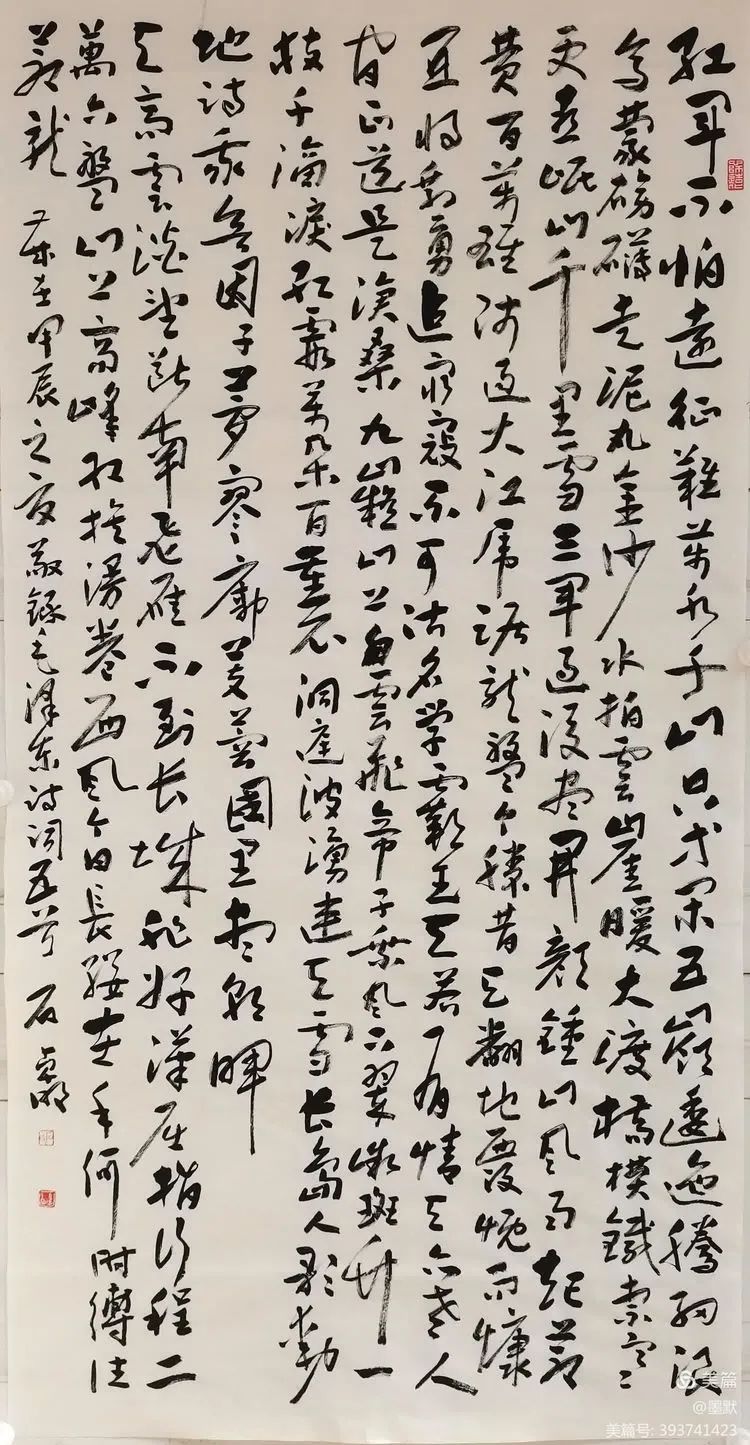 红军不怕遠征難萬水千山只等闲五嶺逶迤騰细浪
烏蒙磅礴走泥丸金沙水拍雲崖暖大渡橋横鐵索寒
更喜岷山千里雪三军过後尽開颜鍾山风雨起蒼
黄百萬雄师过大江虎踞龙盤今勝昔天翻地覆慨而慷
宜将剩勇追穷寇不可沽名学霸王天若有情天亦老人
间正道是滄桑九嶷山上白雲飛帝子乘风下翠微斑竹一
枝千滴淚红霞萬朵百重衣洞庭波湧連天雪长島人歌動
地诗我欲因之夢寥廓芙蓉國里尽朝暉
天高雲淡望断南飞雁不到长城非好漢屈指行程二
萬六盤山上高峰红旗漫卷西风今日長纓在手何时縛住
蒼龙 岁在甲辰之夏敬録毛泽东诗词五首
美篇
@墨默
美篇号: 393741423